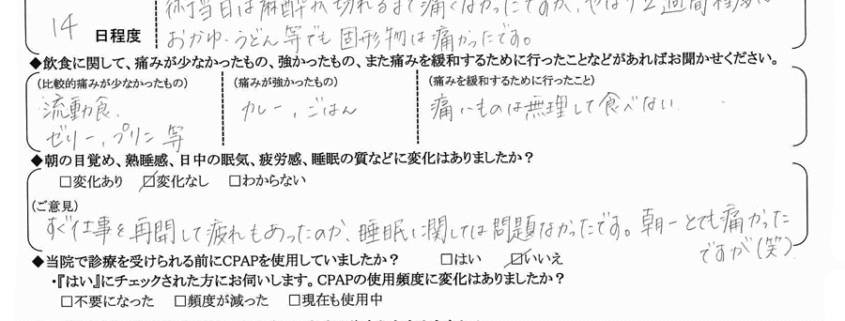 術当日は麻酔が切れるまで痛くなかったですが、やはり2週間程度は
14 日程度
おかゆ・うどん等でも固形物は痛かったです。
◆飲食に関して、痛みが少なかったもの、強かったもの、また痛みを緩和するために行ったことなどがあればお聞かせください。
(比較的痛みが少なかったもの) (痛みが強かったもの) (痛みを緩和するために行ったこと)
流動食、 カレー、ごはん 痛いものは無理して食べない
ゼリー、プリン 等
◆朝の目覚め、熟睡感、日中の眠気、疲労感、睡眠の質などに変化はありましたか?
□変化あり ☑変化なし □わからない
(ご意見)
すぐ仕事を再開して疲れもあったのか、睡眠に関しては問題なかったです。朝一とても痛かった
ですが(笑)
◆当院で診療を受けられる前にCPAPを使用していましたか? □はい ☑いいえ
・『はい』にチェックされた方にお伺いします。CPAPの使用頻度に変化はありましたか?
□不要になった □頻度が減った □現在も使用中